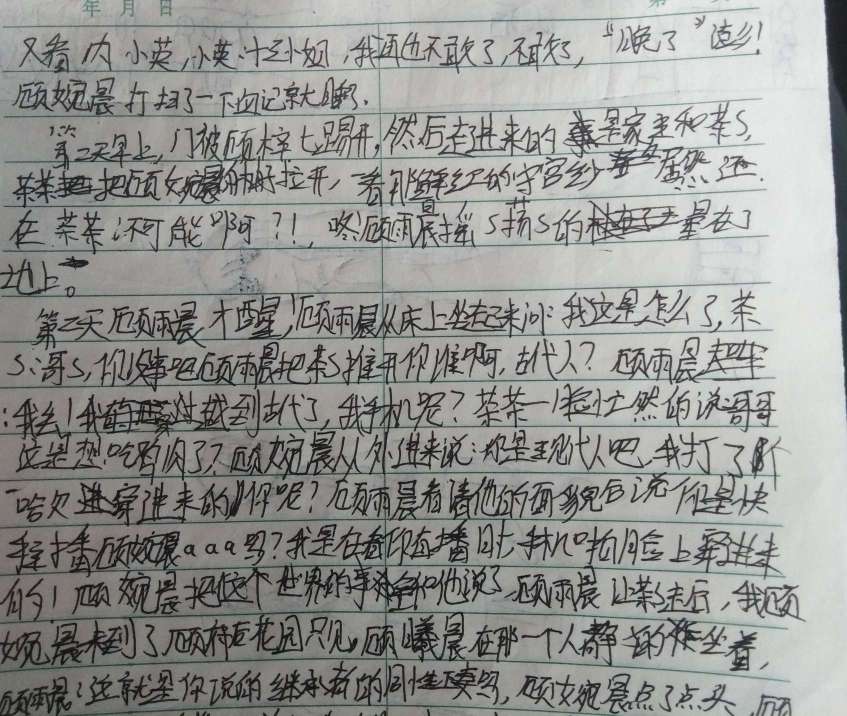 年 月 日
又看 内 小英,小英:十三小姐,我再也不敢了,不敢了,“晚了”渣乡!
顾婉晨打扫了一下血记就睡了.
第二天早上,门被顾梓七踢开,然后走进来的 是家主和茶S,
茶茶 把顾婉晨的 拉开,一看那鲜红的守宫纱 居然还
在 茶茶:不可能 啊?!, 顾雨晨摇S荡S的 晕在了
地上。
第二天顾雨晨才醒,顾雨晨从床上坐起来问:我这是怎么了,茶
S:哥S,你没事吧顾雨晨把茶S推开你谁啊,古代人?顾雨晨
:我去!我 穿越到古代了,我手机呢?茶茶一脸 然的说哥哥
这是想吃鸡肉了?顾婉晨从外进来说:你是现代人吧,我打了个
哈欠 穿进来的 你呢?顾雨晨看清他的面貌后说 你是快
播 顾婉晨aaa吗?我是在看你直播时,手机 拍脸上穿进来
的!顾婉晨把这个世界的事 和他说了,顾雨晨让茶S走后,我顾
婉晨来到了顾府后花园只见,顾曦晨在那一个人静静的 坐着,
顾雨晨:这就是你说的继承者的同性 吗,顾婉晨点了点头,顾